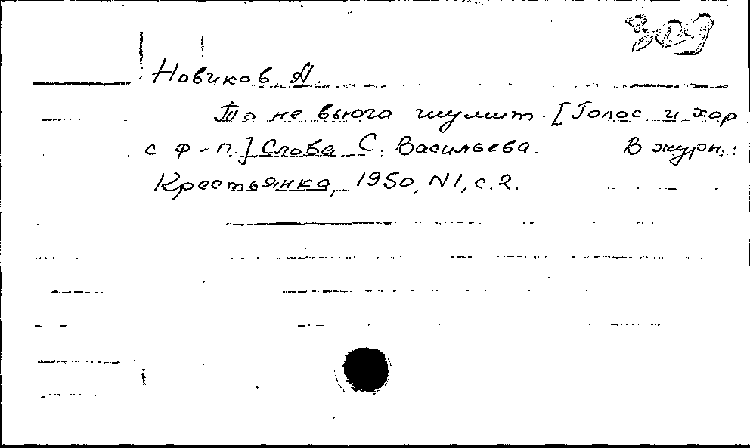 Новиков А.
То не вьюга шумит. [Голос и хор
с ф-п.] Слова С. Васильева. В журн.:
Крестьянка, 1950, N1, с.2.